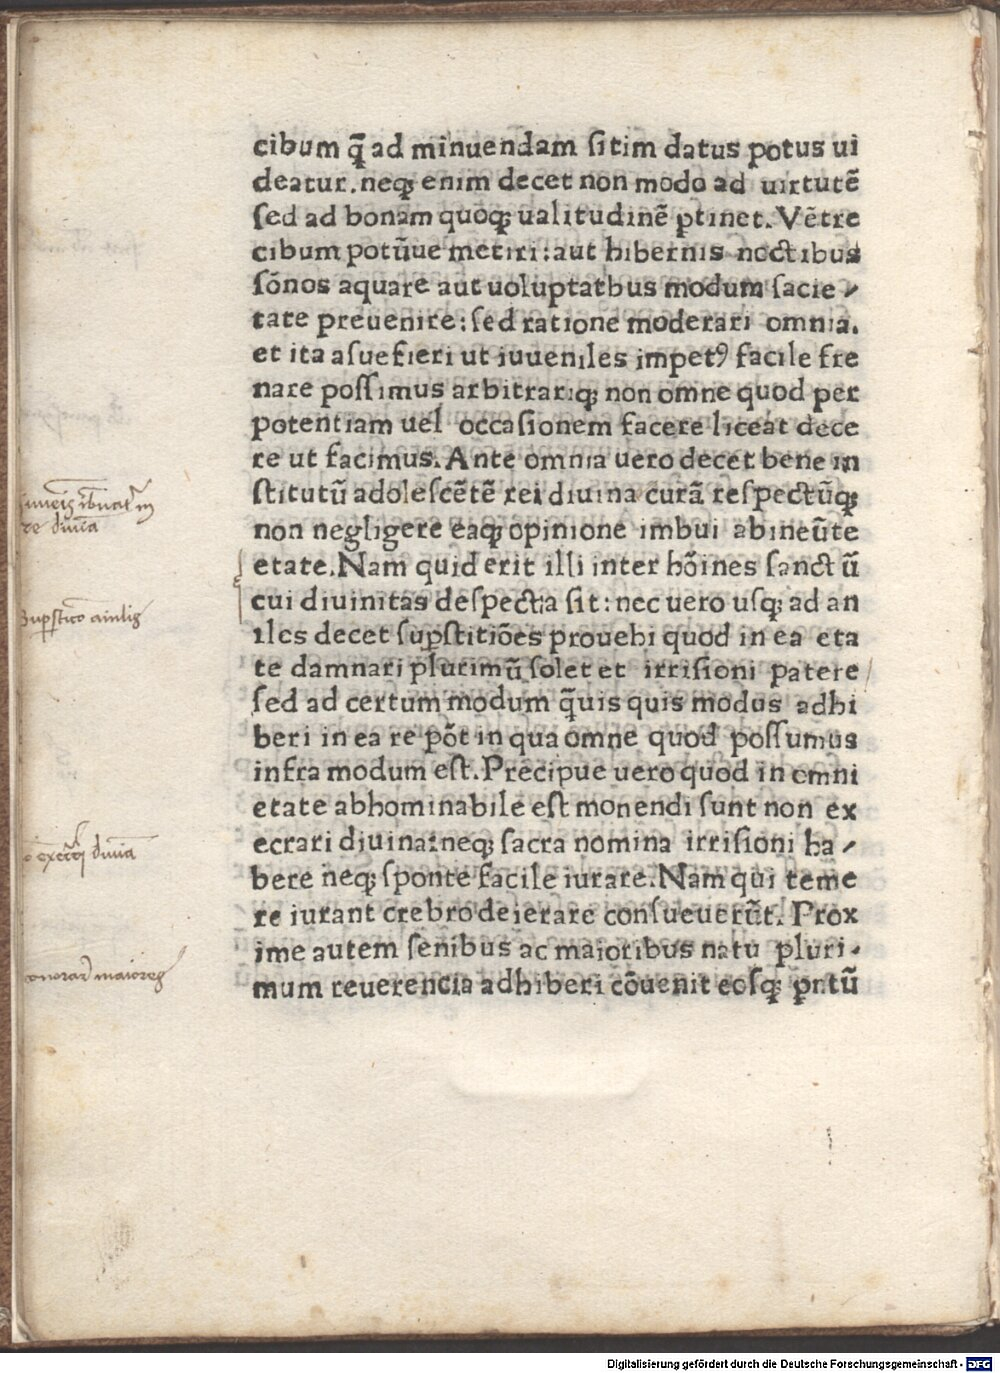 cibum q̃ ad minuendam ſitim datus potus ui
deatur. neqꝫ enim decet non modo ad uirtutẽ
ſed ad bonam quoqꝫ ualitudinẽ ꝑtinet. Vẽtre
cibum potũue metiri: aut hibernis noctibus
ſõnos aquare aut uoluptatbus modum ſacie⸗
tate preuenire: ſed ratione moderari omnia.
et ita aſuefieri ut iuueniles impetꝰ facile fre
nare poſſimus arbitrariqꝫ non omne quod per
potentiam uel occaſionem facere liceat dece
re ut facimus. Ante omnia uero decet bene in
ſtitutũ adoleſcẽtẽ rei diuina curã reſpectũqꝫ
non negligere eaqꝫ opinione imbui abineũte
etate. Nam quid erit illi inter hõines ſanctũ
cui diuinitas deſpectia ſit: nec uero uſqꝫ ad an
iles decet ſuꝑſtitiões prouehi quod in ea eta
te damnari plurimũ ſolet et irriſioni patere
ſed ad certum modum q̃uis quis modus adhi
beri in ea re põt in qua omne quod poſſumus
infra modum eſt. Precipue uero quod in omni
etate abhominabile eſt monendi ſunt non ex
ecrari diuina: neqꝫ ſacra nomina irriſioni ha⸗
bere neqꝫ ſponte facile iurare. Nam qui teme
re iurant crebro deierare conſueuerũt. Prox
ime autem ſenibus ac maioribus natu pluri⸗
mum reuerencia adhiberi cõuenit eoſqꝫ ꝑntũ
re diuĩa
Suꝑſticõ
diuĩa
maiores
Digitalisierung gefördert durch die Deutsche Forschungsgemeinschaft - DFG